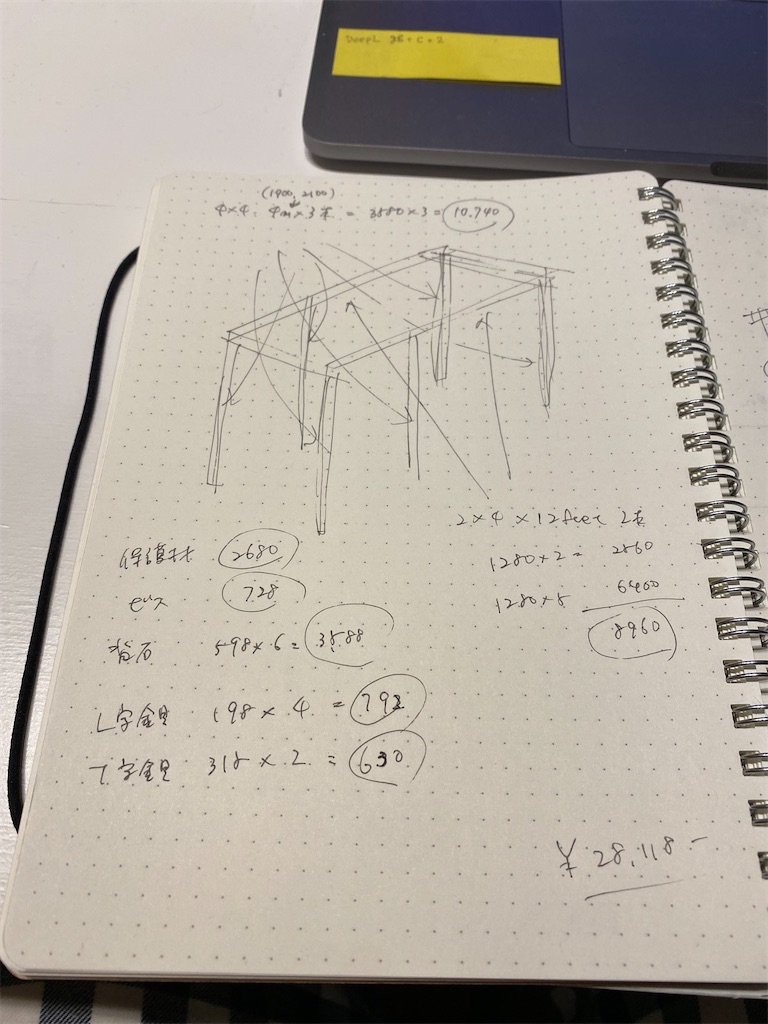 DeepL ⌘+C+2
(1900, 2100)
4×4: 4m×3本 = 3580×3 = 10.740
2×4×12feet 2本
1280×2 = 2560
1280×5 6400
8960
保護材 2680
ビス 728
沓石 598×6 = 3588
L字金具 198×4 = 792
T字金具 315×2 = 630
¥28,118-